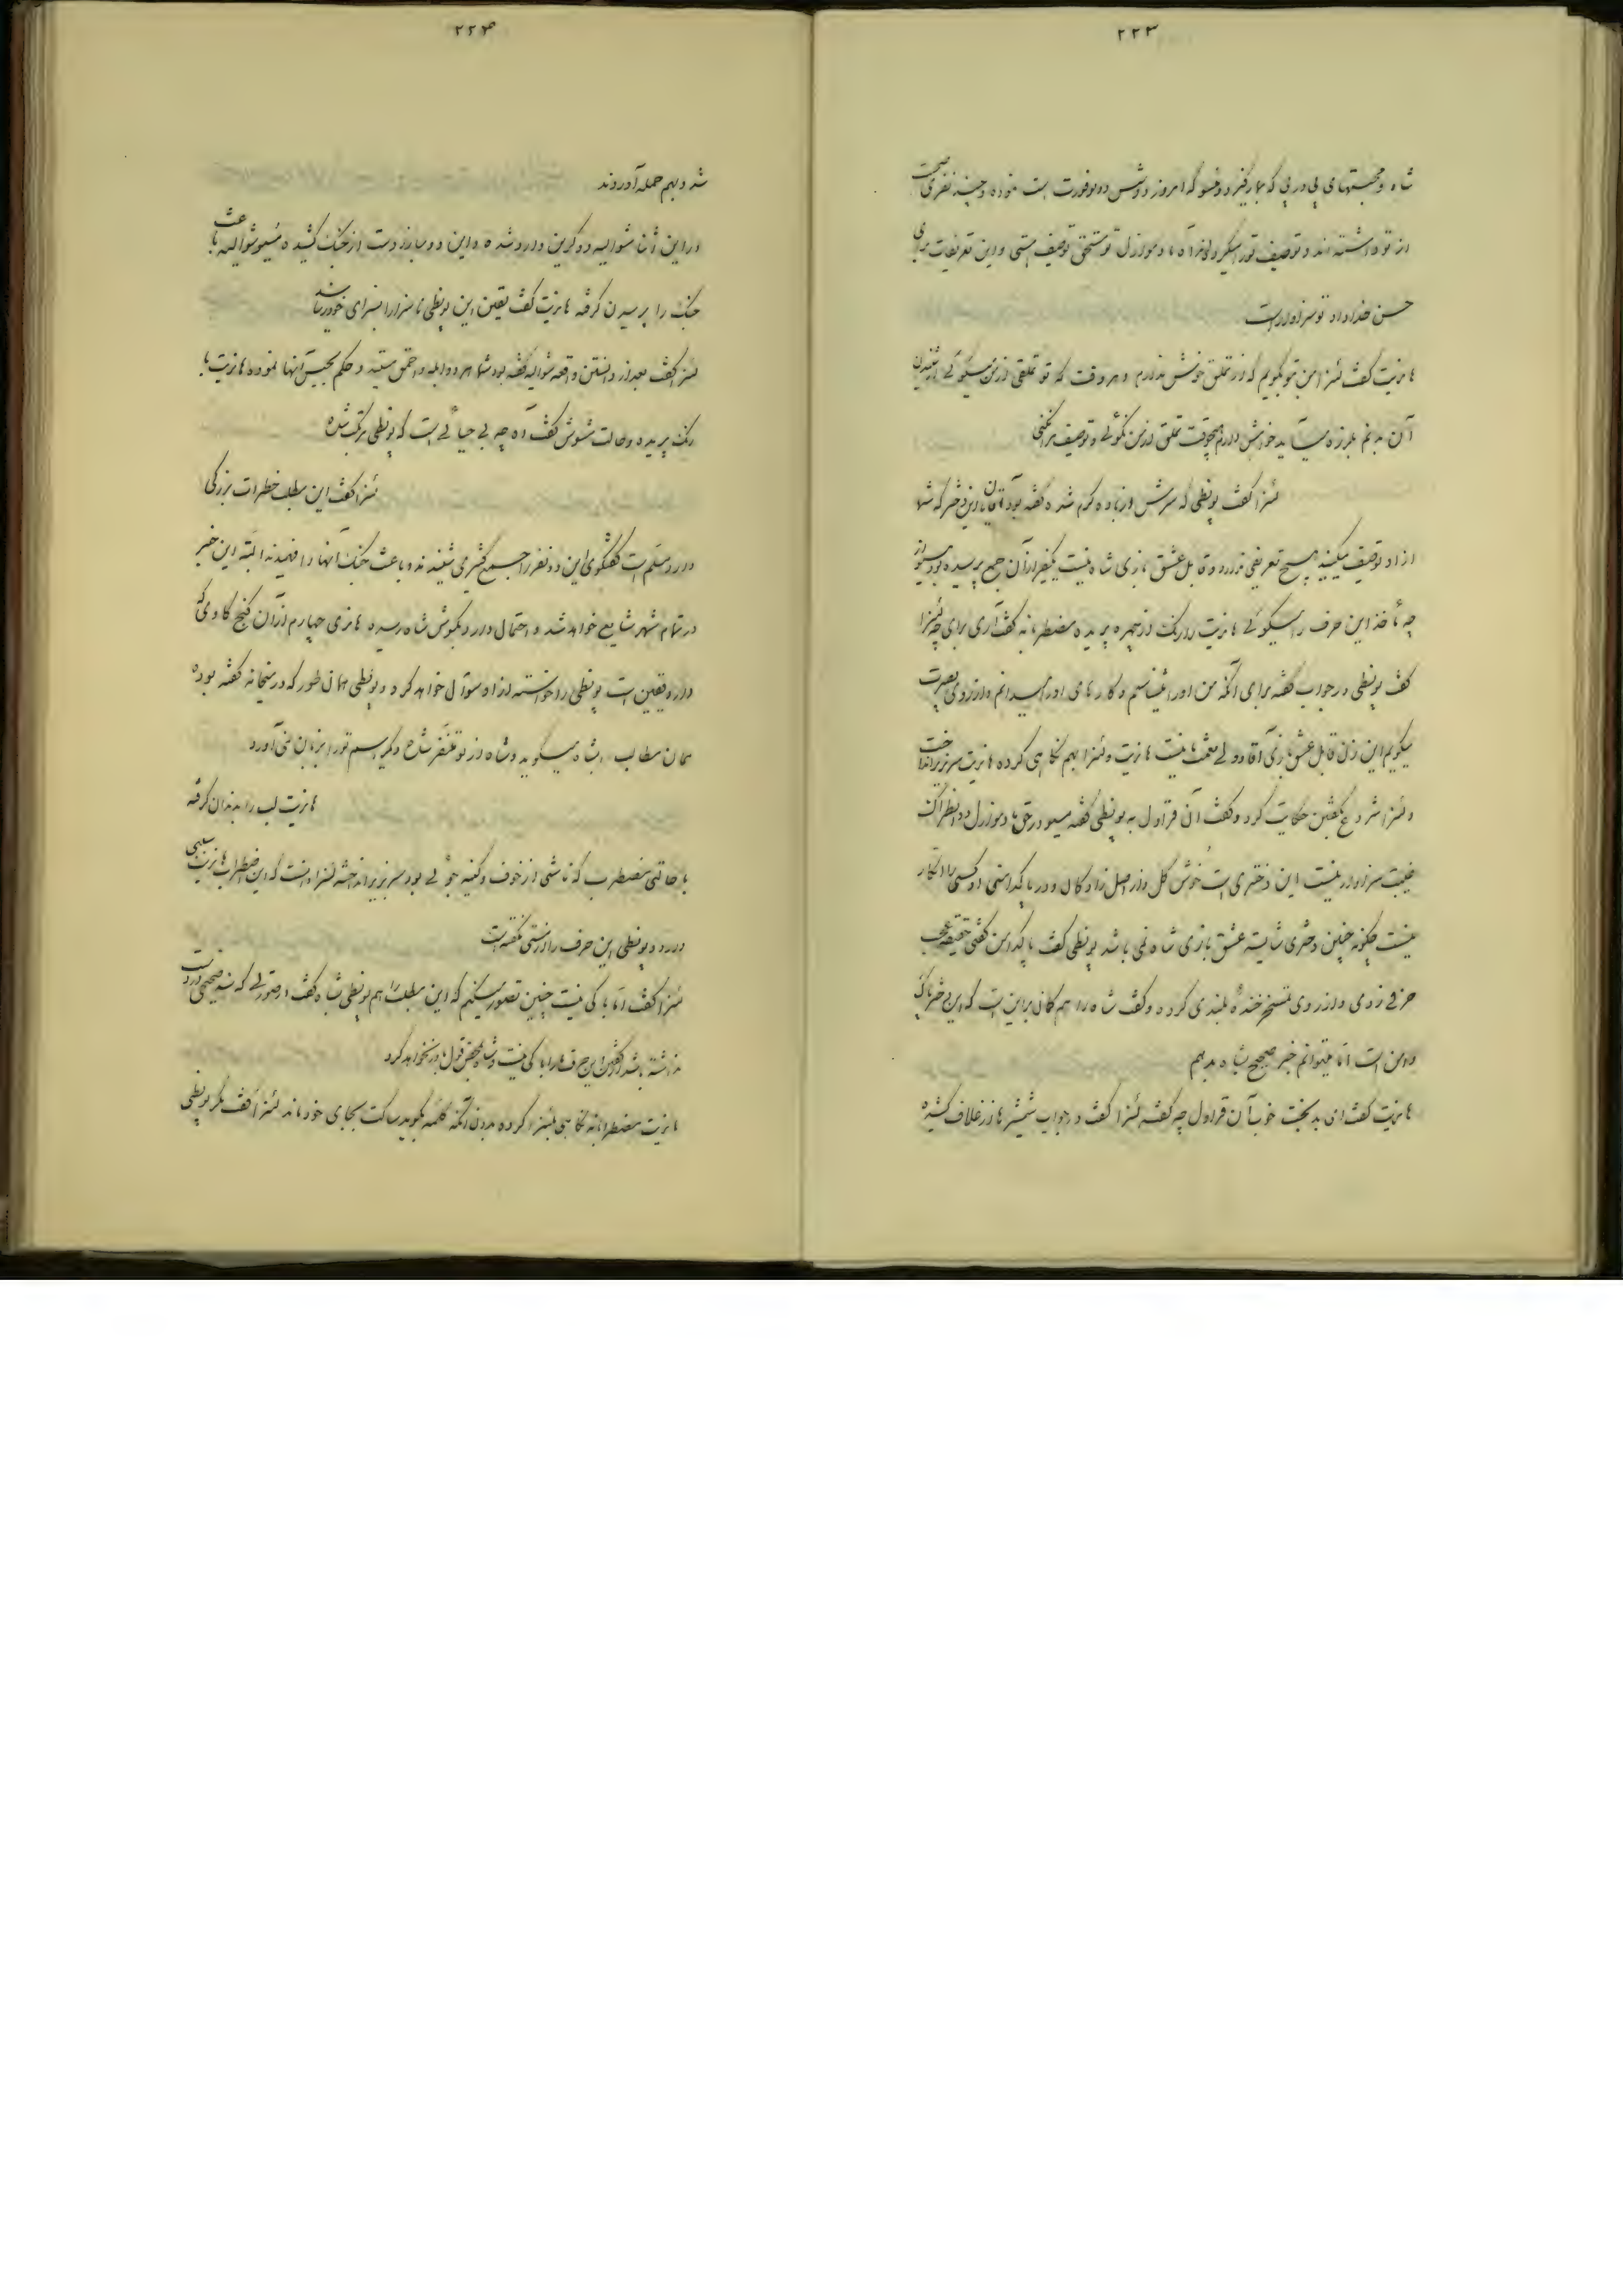 ۲۲۳
شاه و محبتهای پی در پی که بمارکیز دوفسو که امروز دوشس دوبوفورت است نموده و چند نفری صحبت
از تو داشته اند و توصیف تو را میکردند آه مادموازل تو مستحق توصیف هستی و این تعریفات برای
حسن خداداد تو سزاوار است
هانریت گفت لئنزا من بتو بگویم که از تملق خوش ندارم و هر وقت که تو تملقی از من میگوئی از شنیدن
آن بدنم بلرزه میآید خواهش دارم هیچوقت تملق از من نگوئی و توصیف مرا نکنی
لئنزا گفت بونظی که سرش از باده گرم شده گفته بود آقایان این دختر که شما
از او توصیف میکنید هیچ تعریفی ندارد و قابل عشق بازی شاه نیست یکنفر از آن جمع پرسیده بود مسیو از
چه مأخذ این حرف را میگوئی هانریت را رنگ از چهره پریده مضطربانه گفت آری برای چه لئنزا
گفت بونظی در جواب گفته برای آنکه من او را میشناسم و کارهای او را میدانم و از روی بصیرت
میگویم این زن قابل عشق بازی آقا و ولی نعمت ما نیست هانریت و لئنزا بهم نگاهی کرده هانریت سر بزیر انداخت
و لئنزا شروع بگفتن حکایت کرد و گفت آن قراول به بونظی گفته مسیو در حق مادموازل دو انطراگ
غیبت سزاوار نیست این دختری است خوش گل و از اصل زادگان و در پاکدامنی او کسی را انکار
نیست چگونه چنین دختری شایسته عشق بازی شاه نمی باشد بونظی گفت پاکدامن گفتی حقیقة عجب
حرفی زدی و از روی تمسخر خنده بلندی کرده و گفت شاه را هم گمان بر این است که این دختر پاک
دامن است اما میتوانم خبر صحیح بشاه بدهم
هانریت گفت ای بدبخت خوب آن قراول چه گفت لئنزا گفت در جواب شمشیرها از غلاف کشیده
۲۲۴
شد و بهم حمله آوردند
در این آن شوالیه دوگرین وارد شده و این دو مبارز دست از جنگ کشیده مسیو شوالیه باعث
جنگ را پرسیدن گرفته هانریت گفت یقین این بونظی ناسزا را بسزای خود رساند
لئنزا گفت بعد از دانستن واقعه شوالیه گفته بود شما هر دو ابله و احمق هستید و حکم بحبس آنها نموده هانریت با
رنگ پریده و حالت مشوش گفت آه چه بی حیائی است که بونظی مرتکب شده
لئنزا گفت این مطلب خطرات بزرگی
دارد مسلم است گفتگوی این دو نفر را جمع کثیری شنیده اند و باعث جنگ آنها را فهمیدند البته این خبر
در تمام شهر شایع خواهد شد و احتمال دارد بگوش شاه رسیده هانری چهارم از آن کنج کاوی که
دارد یقین است بونظی را خواسته از او سوآل خواهد کرد و بونظی همان طور که در میخانه گفته بوده
همان مطالب را بشاه میگوید و شاه از تو متنفر شده دیگر اسم تو را بزبان نمی آورد
هانریت لب را بدندان گرفته
با حالتی مضطرب که ناشی از خوف و کینه جوئی بود سر بزیر انداخته لئنزا دانست که این اضطراب هانریت سببی
دارد و بونظی این حرف را از مستی نگفته است
لئنزا گفت اما باکی نیست چنین تصور میکنم که این مطلب را هم بونظی بشاه گفت در صورتی که سند صحیحی در دست
نداشته باشد گفتن این حرف او را باکی نیست و شاه بمحض قول باور نخواهد کرد
هانریت مضطربانه نگاهی بلئنزا کرده بدون آنکه کلمه بگوید ساکت بجای خود ماند لئنزا گفت مگر بونظی